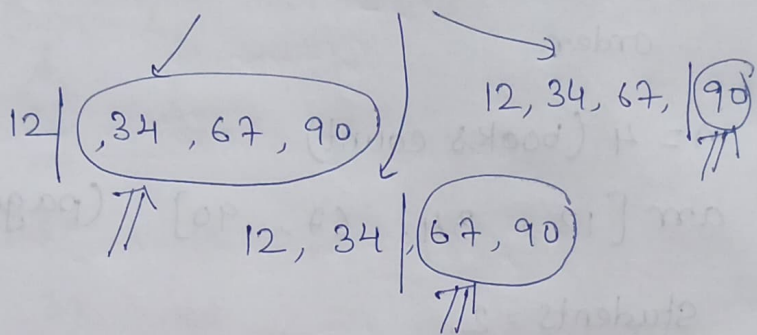 12 | , 34 , 67 , 90
12, 34, 67, | 90
12, 34 | , 67, 90